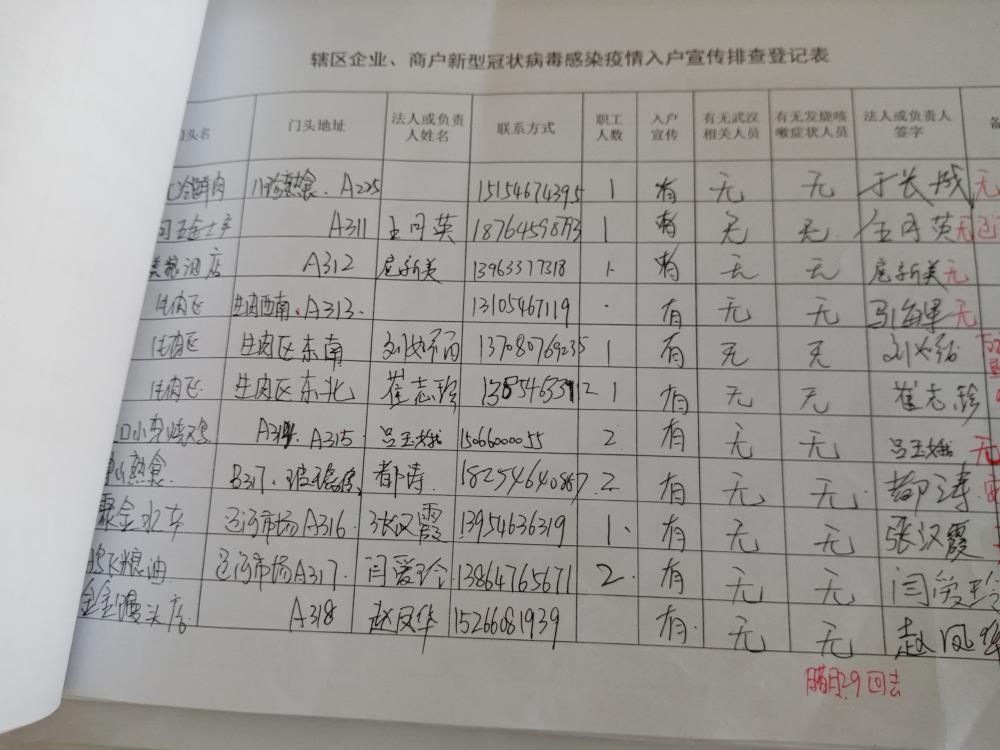 辖区企业、商户新型冠状病毒感染疫情入户宣传排查登记表
头名 门头地址 法人或负责人姓名 联系方式 职工人数 入户宣传 有无武汉相关人员 有无发烧咳嗽症状人员 法人或负责人签字
鲜肉 熟食. A225 15154674395 1 有 无 无 于长城 无
五金土产 A311 王同英 18764598793 1 有 无 无. 王同英 无
粮酒店 A312 新美 13963377318 1. 有 无 无 新美 无
牛肉区 牛肉西南. A313. 13105467119 . 有 无 无 马海军 无
牛肉区 牛肉区东南 13780769235 1 有 无 无
牛肉区 牛肉区东北 崔志珍 1 有 无 无 崔志珍
A315 吕玉娥 15066000055 2. 有 无 无 吕玉娥 无
熟食. B317. 都涛 18254640867 2. 有 无 无. 都涛
聚金水产 市场A316 张汉霞 13954636319 1. 有 无 无 张汉霞
粮油 市场A317. 闫爱玲 13864765671 2. 有 无 无 闫爱玲
金馒头店. A318 赵凤华 15266081939 有. 无 无 赵凤华
腊月29回去